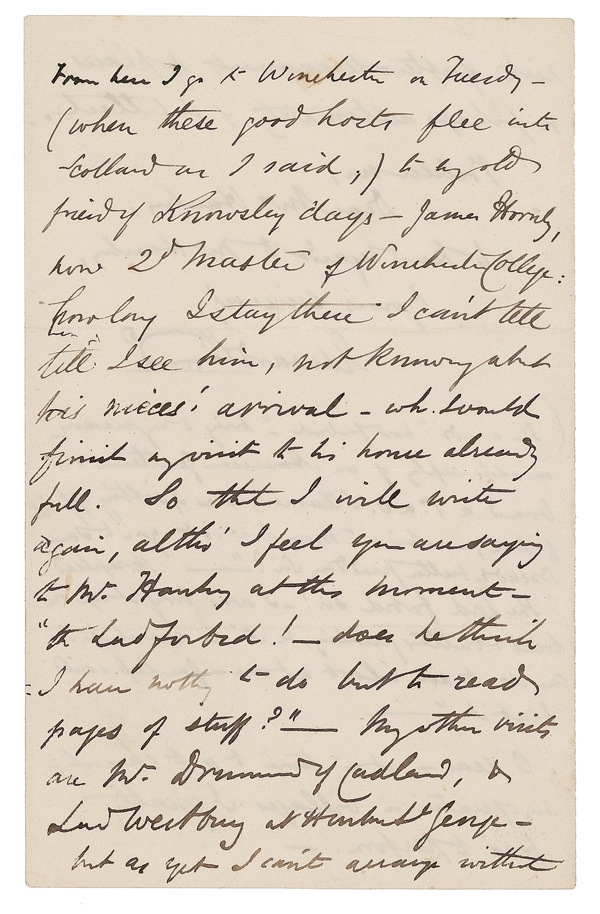 From here I go to Winchester on Tuesdy –
(when these good hosts flee into
Scotland as I said,) to my old
friend of Knowsley days – James Hornby,
now 2d Master of Winchester College:
how long I stay there I can't tell
till I see him, not knowing about
his nieces' arrival – wh. would
finish my visit to his house already
full. So that I will write
again, altho' I feel you are saying
to Mr. Hanby at this moment –
"the Lud forbid! – does he think
I have nothg to do but to read
pages of stuff?" — My other visits
are Mr. Drummond of Cadland, &
Lord Westbury at Hinton St George –
but as yet I can't arrange without